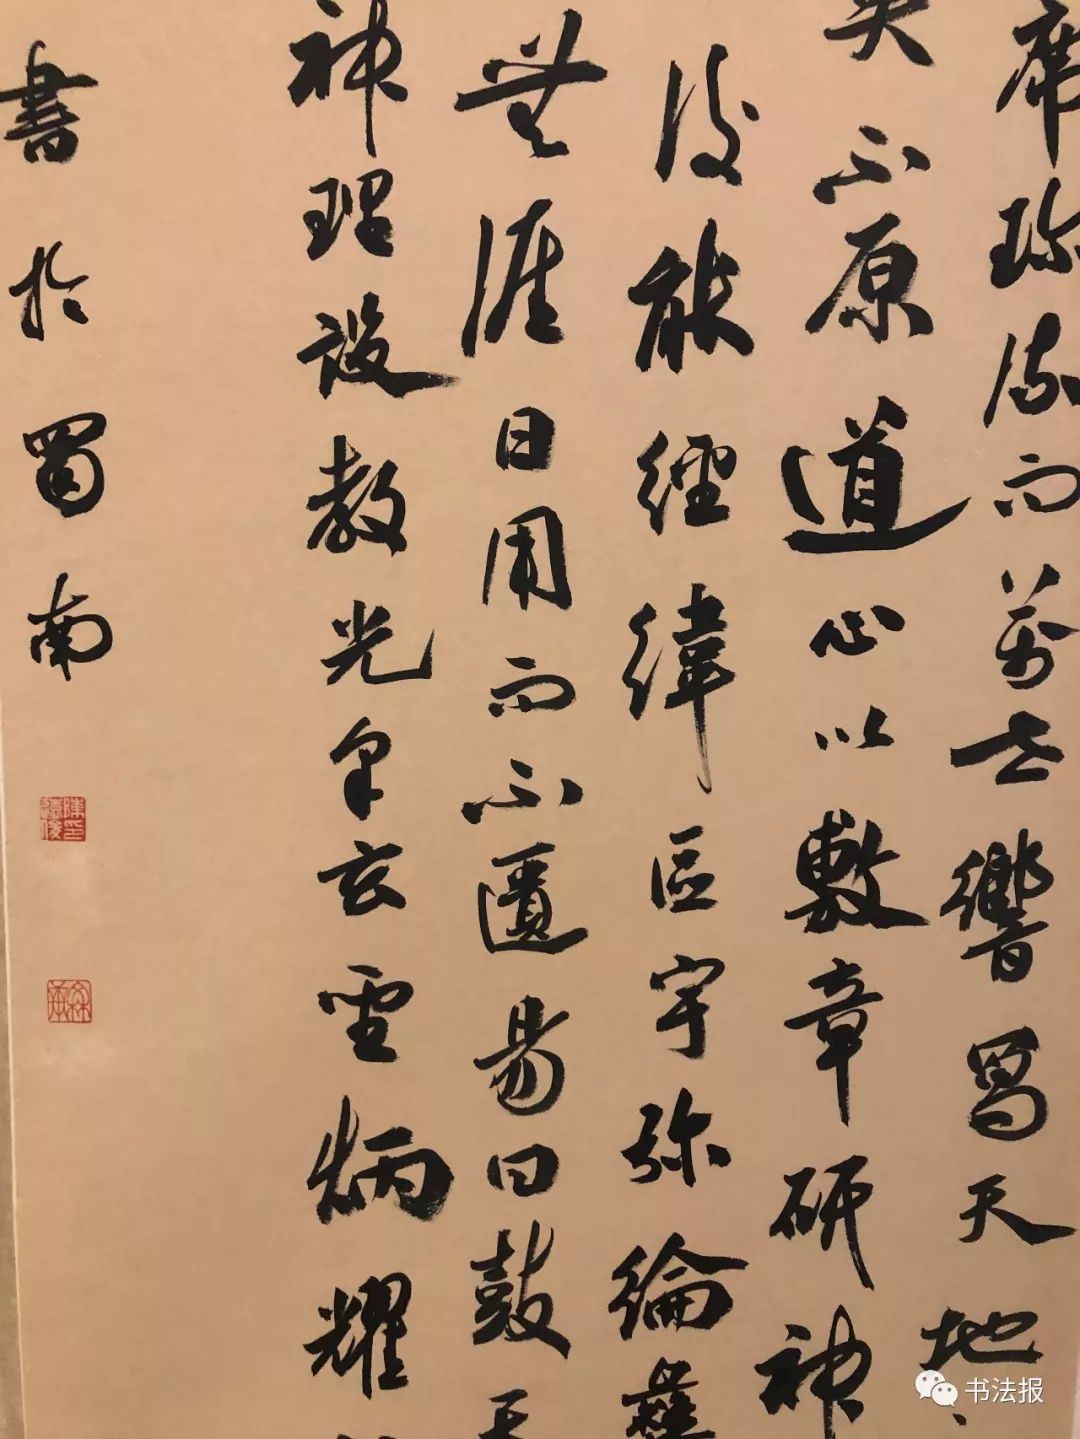 席珍流而萬世響寫天地
莫不原道心以敷章研神
後能經緯區宇弥綸彝
無涯日用而不匱易曰鼓天
神理設教光采玄聖炳耀
書於蜀南
书法报